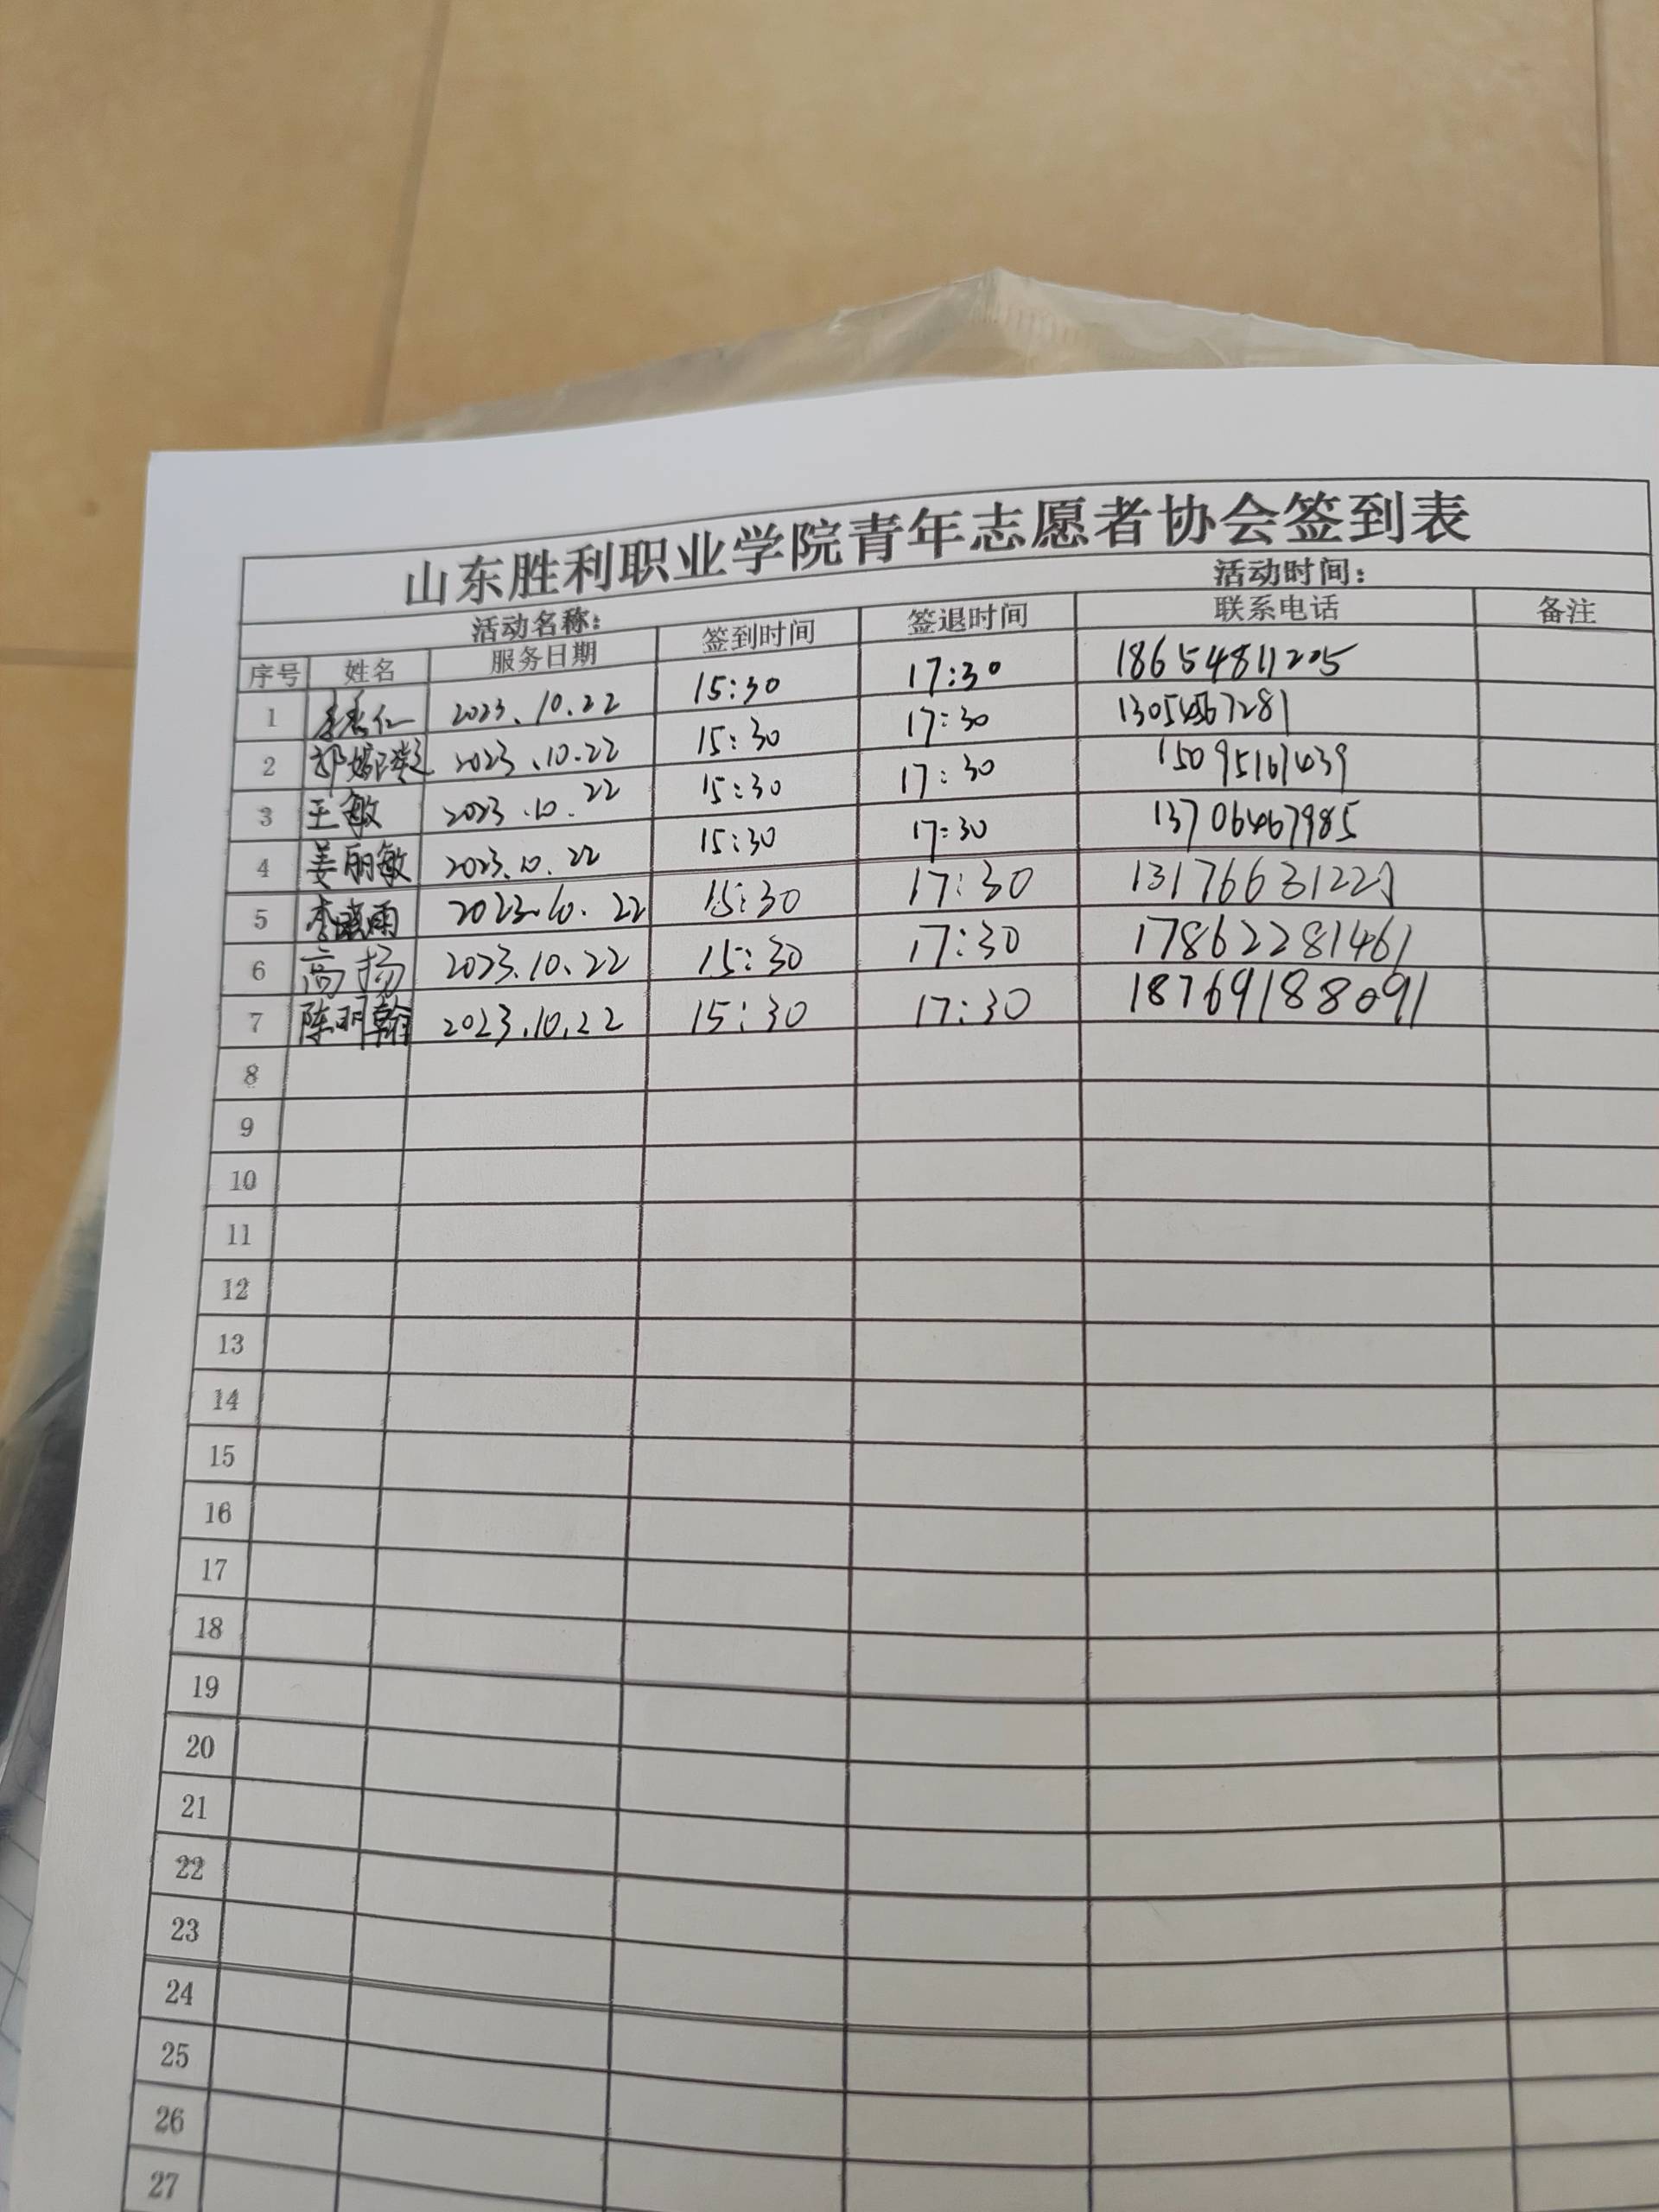 山东胜利职业学院青年志愿者协会签到表
活动名称： 活动时间：
序号 姓名 服务日期 签到时间 签退时间 联系电话 备注
1 2023.10.22 15:30 17:30 18654811205
2 2023.10.22 15:30 17:30
3 王敏 2023.10.22 15:30 17:30
4 姜丽敏 2023.10.22 15:30 17:30 13706467985
5 2023.10.22 15:30 17:30
6 高扬 2023.10.22 15:30 17:30 17862281461
7 陈明翰 2023.10.22 15:30 17:30 18769188091
8
9
10
11
12
13
14
15
16
17
18
19
20
21
22
23
24
25
26
27